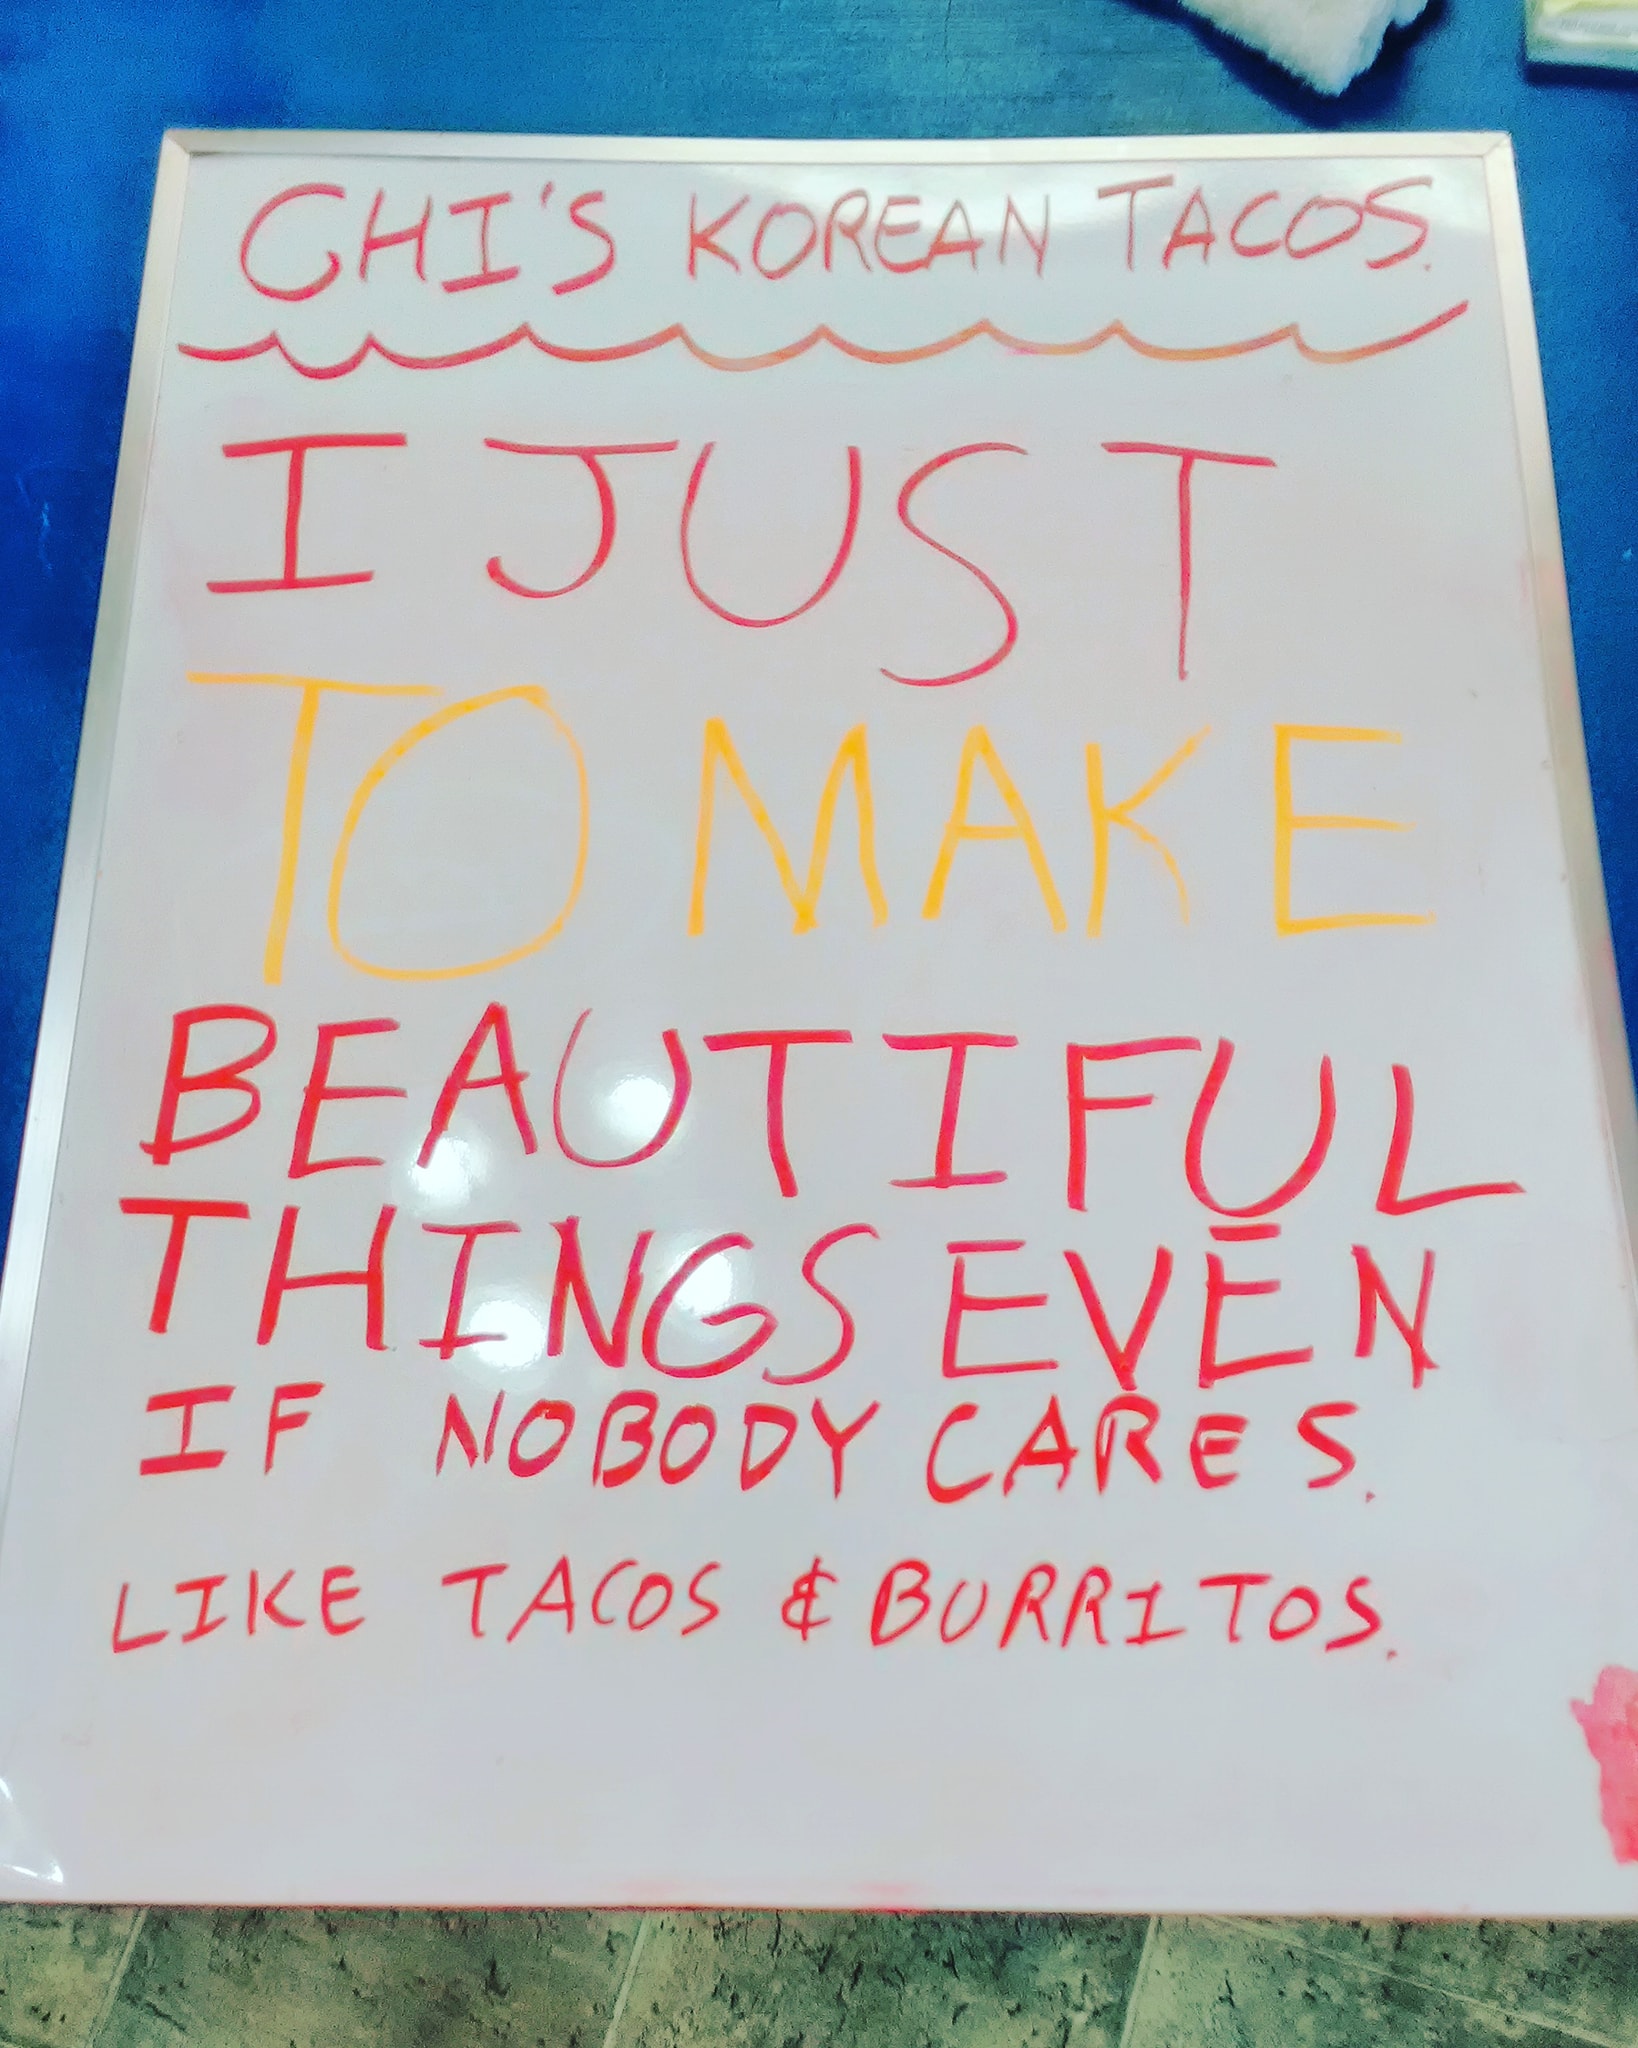 CHI'S KOREAN TACOS.
I JUST
TO MAKE
BEAUTIFUL
THINGS EVEN
IF NOBODY CARES.
LIKE TACOS & BURRITOS.